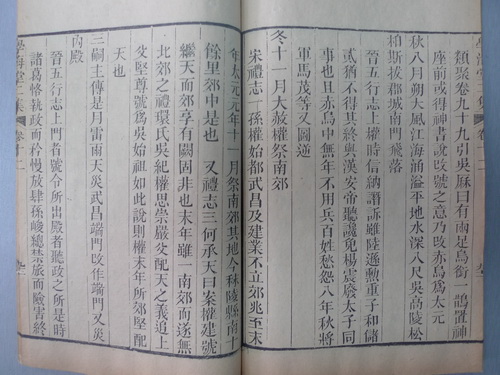 類聚卷九十九引吳厤曰有兩足鳥銜一鵲置神
座前或得神書說改號之意乃改赤烏為太元
秋八月朔大風江海涌溢平地水深八尺吳高陵松
柏斯拔郡城南門飛落
晉五行志上權時信納譖訴雖陸遜勲重子和儲
貳猶不得其終與漢安帝聽讒免楊震廢太子同
事也且赤烏中無年不用兵百姓愁怨八年秋將
軍馬茂等又圖逆
冬十一月大赦權祭南郊
宋禮志一孫權始都武昌及建業不立郊兆至末
年太元元年十一月祭南郊其地今秣陵縣南十
餘里郊中是也 又禮志三何承天曰案權建號
繼天而郊享有闕固非也末年雖一南郊而遂無
北郊之禮環氏吳紀權思崇嚴父配天之義追上
父堅尊號為吳始祖如此說則權末年所郊堅配
天也
三嗣主傳是月雷雨天災武昌端門改作端門又災
內殿
晉五行志上門者號令所出殿者聽政之所是時
諸葛恪執政而矜慢放肆孫峻總禁旅而險害終
學海堂二集 卷十二